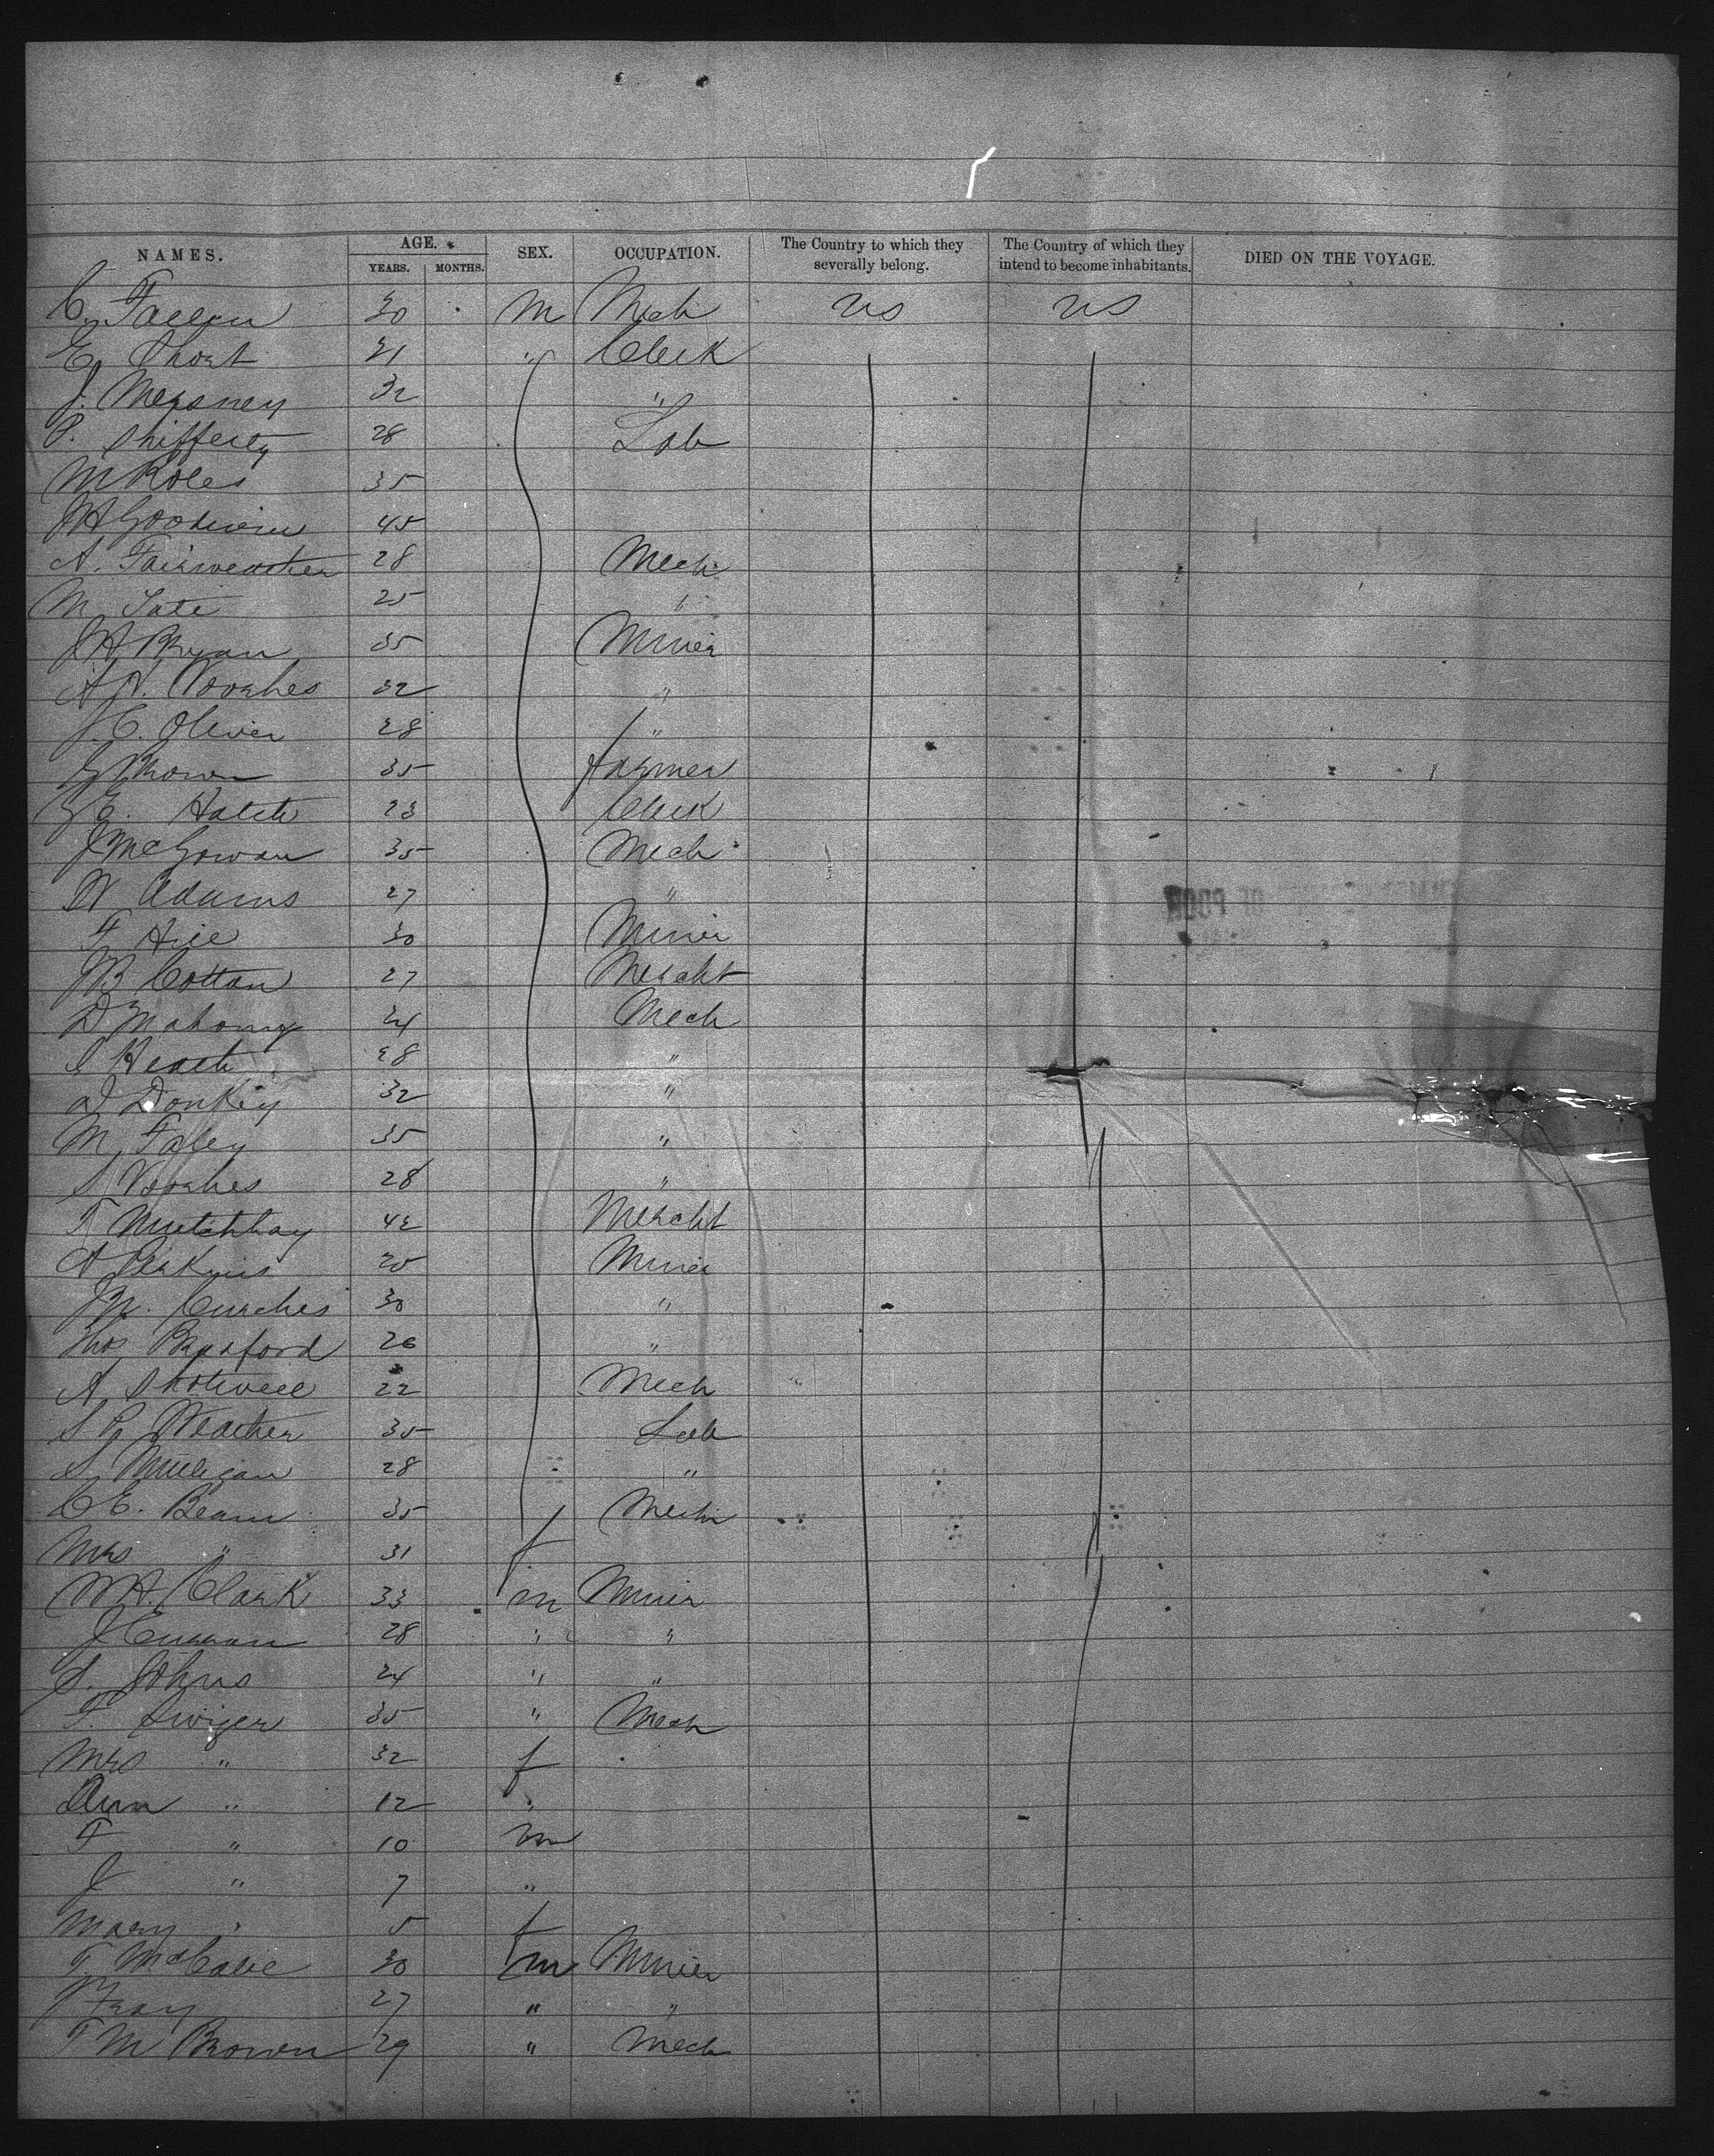 NAMES. AGE. SEX. OCCUPATION. The Country to which they severally belong. The Country of which they intend to become inhabitants. DIED ON THE VOYAGE.
YEARS. MONTHS.
C. Fallon 30 m Mech US US
E. Short 21 " Clerk
J. 32 "
P. Shifferty 28 Lab
M Roles 35
J H Goodwin 45
A. Fairweather 28 Mech
M Tate 25 "
J H Bryan 35 Miner
A. Voorhes 32 "
J. C. Oliver 28 "
G Brown 35 farmer
G E. Hatch 23 Clerk
J McGowan 35 Mech
W Adams 27 "
F Hill 30 Miner
J B Cotton 27 Mercht
D Mahony 24 Mech
S Heath 28 "
D Donkey 32 "
M Foley 35 "
S Voorhes 28 "
T 42 Mercht
A Perkins 25 Miner
J M. Curches 30 "
Thos Bradford 26 "
A Shotwell 22 Mech
S P 35 Lab
S. Mulligan 28 "
C E. Beam 35 Mech
Mrs " 31 f
W A. Clark 33 m Miner
J Curran 28 " "
S. Johns 24 " "
F. Swizer 35 " Mech
Mrs " 32 f
Ann " 12 "
F " 10 m
J " 7 "
Mary " 5 f
T McCabe 30 m Miner
27 " "
T M Brown 29 " Mech